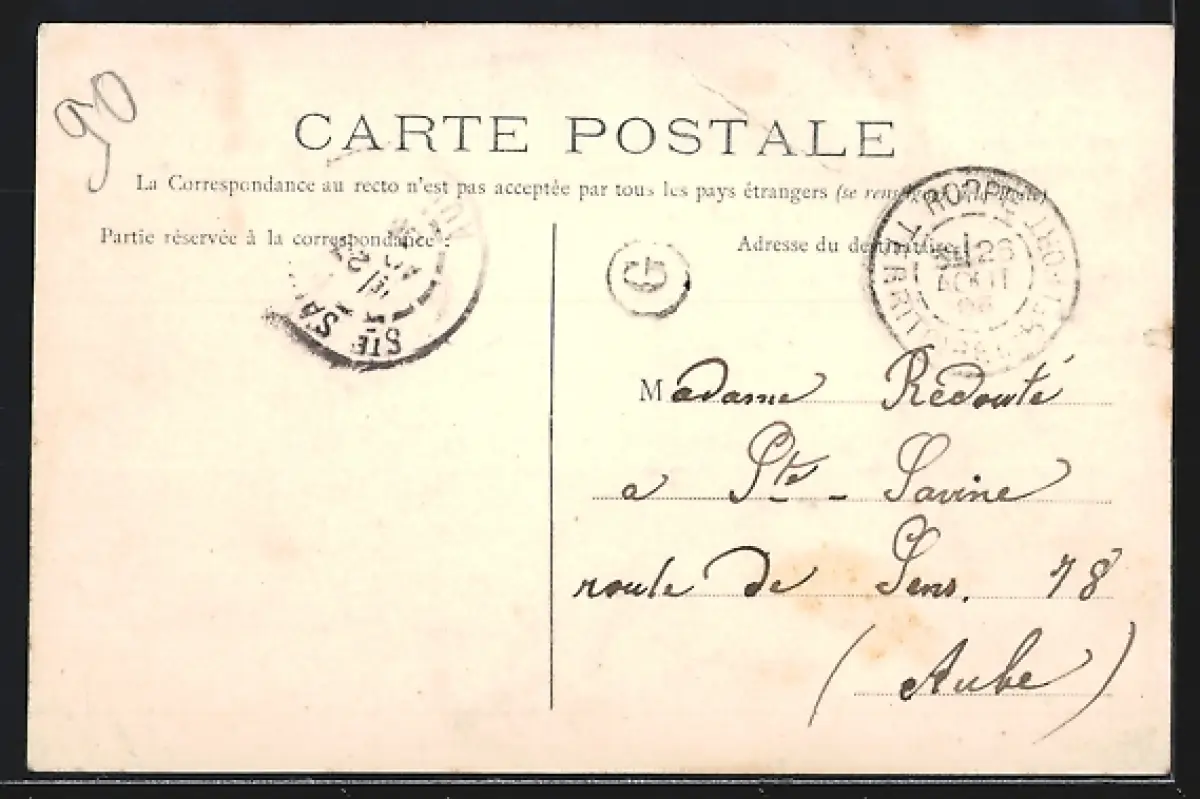 90
CARTE POSTALE
La Correspondance au recto n'est pas acceptée par tous les pays étrangers (se renseigner à la poste)
Partie réservée à la correspondance :
Adresse du destinataire :
STE SA
27
G
ROPPE
26
AOUT
Madame Redouté
a Ste - Savine
route de Sens. 78
(Aube)